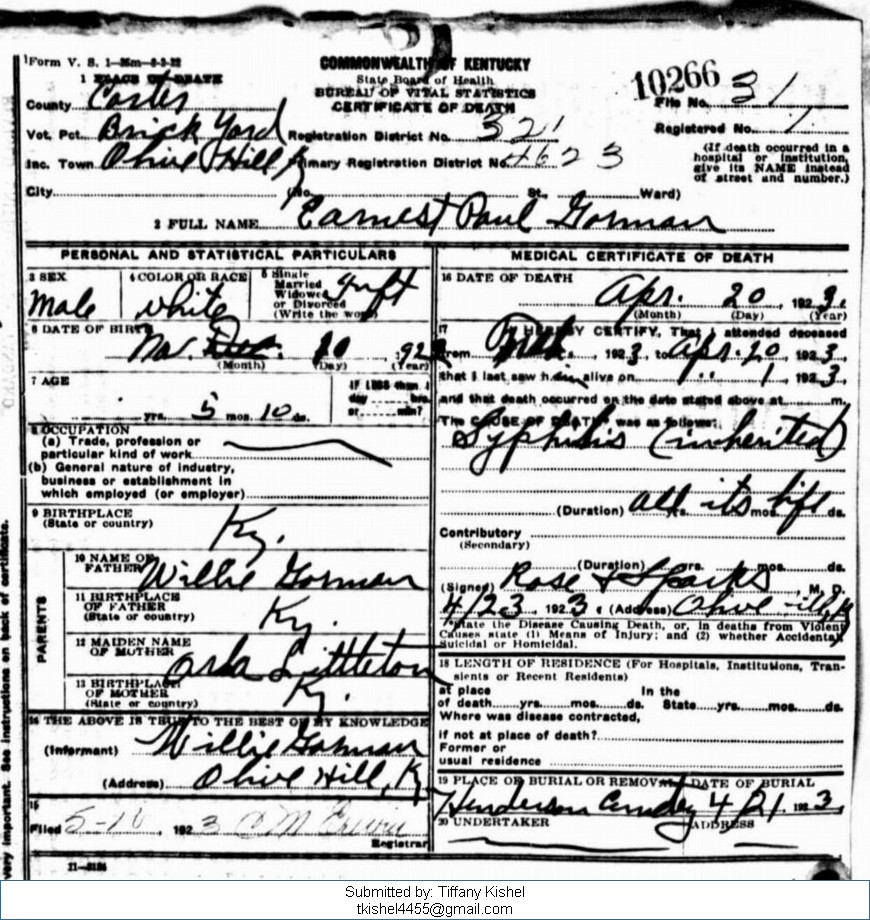 Form V. S. 1-35m-8-3-22
COMMONWEALTH OF KENTUCKY
State Board of Health
BUREAU OF VITAL STATISTICS
CERTIFICATE OF DEATH
10266
File No. 31
Registered No. 1
(If death occurred in a
hospital or institution,
give its NAME instead
of street and number.)
1 PLACE OF DEATH
County Carter
Vot. Pct. Brick Yard
Registration District No. 321
Inc. Town Olive Hill Ky
Primary Registration District No. 4623
City (No. St., Ward)
2 FULL NAME Earnest Paul Gorman
PERSONAL AND STATISTICAL PARTICULARS
3 SEX
Male
4 COLOR OR RACE
white
5 Single
Married
Widowed
or Divorced
(Write the word)
Inft
6 DATE OF BIRTH
Nov. 10, 192
(Month) (Day) (Year)
7 AGE
yrs. 5 mos. 10 ds.
IF LESS than 1
day hrs.
or min?
8 OCCUPATION
(a) Trade, profession or
particular kind of work
(b) General nature of industry,
business or establishment in
which employed (or employer)
9 BIRTHPLACE
(State or country)
Ky.
PARENTS
10 NAME OF
FATHER Willie Gorman
11 BIRTHPLACE
OF FATHER
(State or country)
Ky.
12 MAIDEN NAME
OF MOTHER
Littleton
13 BIRTHPLACE
OF MOTHER
(State or country)
Ky.
14 THE ABOVE IS TRUE TO THE BEST OF MY KNOWLEDGE
(Informant) Willie Gorman
(Address) Olive Hill, Ky
15
Filed 5-10, 1923
Registrar
11-3184
MEDICAL CERTIFICATE OF DEATH
16 DATE OF DEATH
Apr. 20, 1923.
(Month) (Day) (Year)
17 I HEREBY CERTIFY, That I attended deceased
from 1923, to Apr. 20, 1923,
that I last saw him alive on 1, 1923,
and that death occurred on the date stated above at m.
The CAUSE OF DEATH was as follows:
Syphilis (inherited)
(Duration) all its life yrs. mos. ds.
Contributory
(Secondary)
(Duration) yrs. mos. ds.
(Signed) Rose & Sparks, M. D.
4/23, 1923 (Address) Olive Hill, Ky
*State the Disease Causing Death, or, in deaths from Violent
Causes state (1) Means of Injury; and (2) whether Accidental,
Suicidal or Homicidal.
18 LENGTH OF RESIDENCE (For Hospitals, Institutions, Tran-
sients or Recent Residents)
at place In the
of death yrs. mos. ds. State yrs. mos. ds.
Where was disease contracted,
if not at place of death?
Former or
usual residence
19 PLACE OF BURIAL OR REMOVAL DATE OF BURIAL
Henderson Cemetery 4/21, 1923
20 UNDERTAKER ADDRESS
very important. See instructions on back of certificate.
Submitted by: Tiffany Kishel
tkishel4455@gmail.com